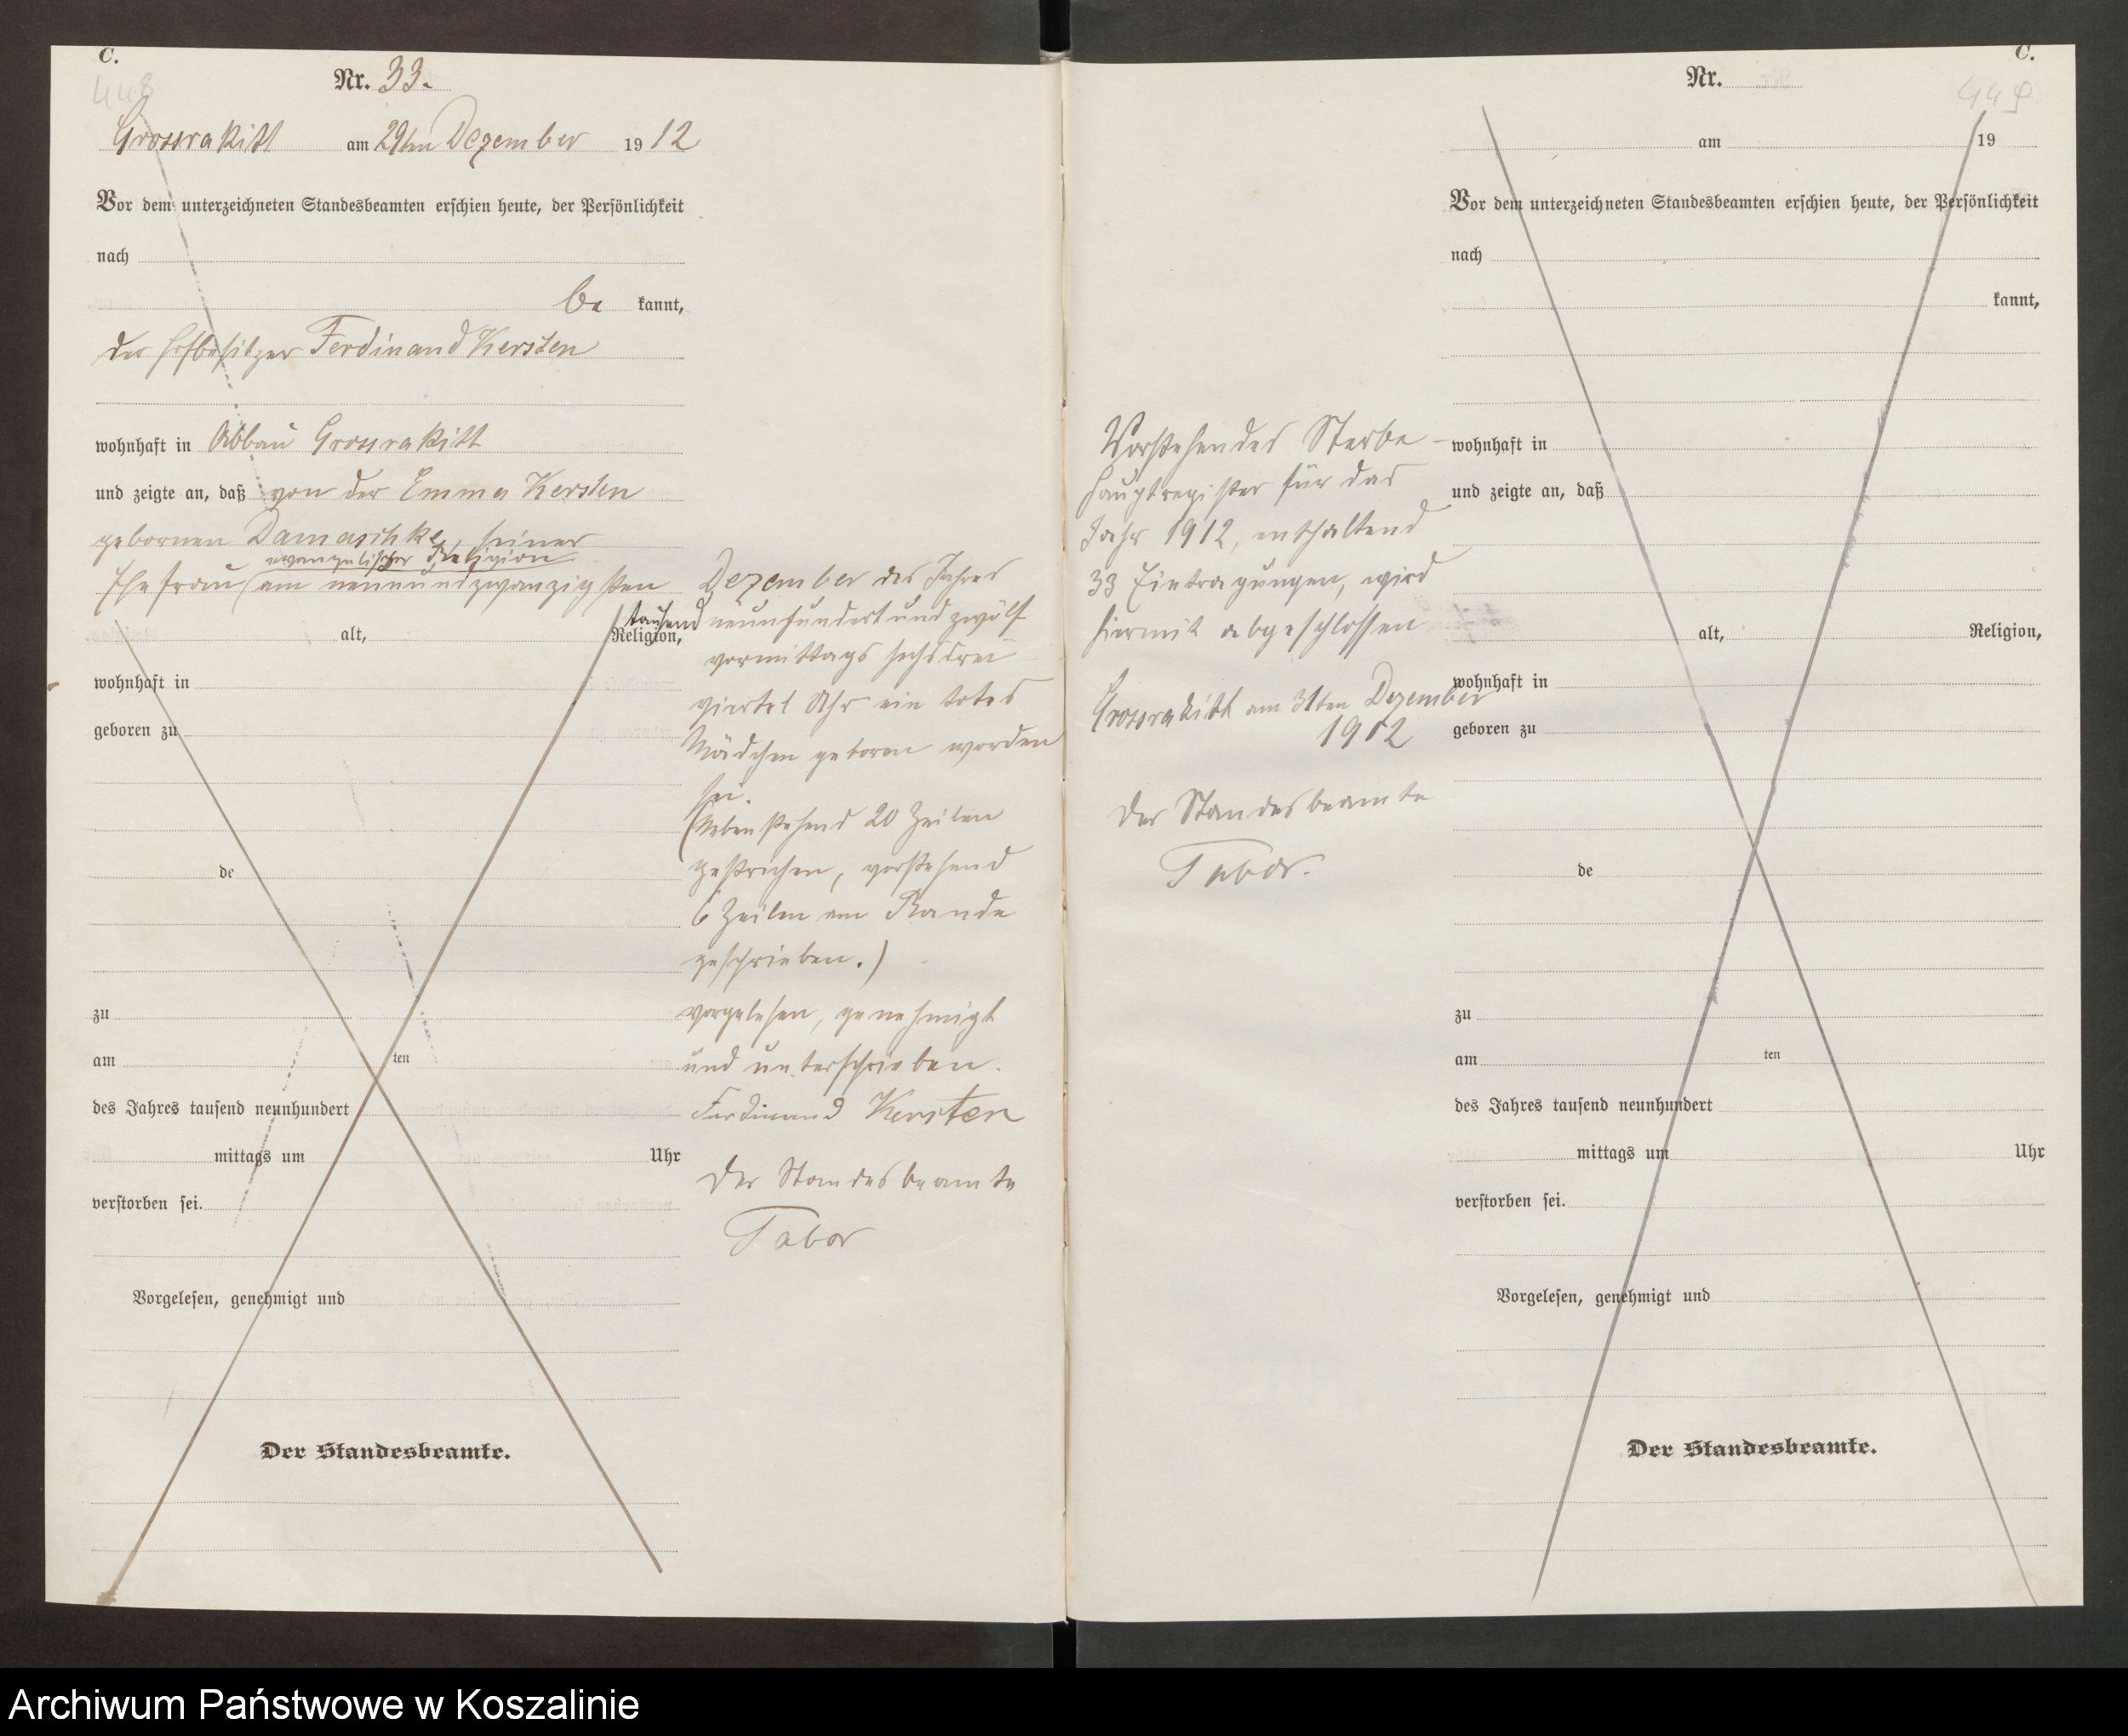 C.
448
Nr. 33.
Grossrakitt am 29ten Dezember 1912
Vor dem unterzeichneten Standesbeamten erschien heute, der Persönlichkeit
nach
be kannt,
der Hofbesitzer Ferdinand Kersten
wohnhaft in Abbau Grossrakitt
und zeigte an, daß von der Emma Kersten
gebornen Damaschke, seiner
evangelischer Religion
Ehefrau (am neunundzwanzigsten
alt, Religion,
wohnhaft in
geboren zu
de
zu
am ten
des Jahres tausend neunhundert
mittags um Uhr
verstorben sei.
Vorgelesen, genehmigt und
Der Standesbeamte.
Dezember des Jahres
tausend neunhundert und zwölf
vormittags sechsdrei
viertel Uhr ein totes
Mädchen geboren worden
sei.
(Nebenstehend 20 Zeilen
gestrichen, vorstehend
6 Zeilen am Rande
geschrieben.)
vorgelesen, genehmigt
und unterschrieben.
Ferdinand Kersten
Der Standesbeamte
Tabor
Vorstehendes Sterbe-
hauptregister für das
Jahr 1912, enthaltend
33 Eintragungen, wird
hiermit abgeschlossen
Grossrakitt am 31ten Dezember
1912
Der Standesbeamte
Tabor.
C.
449
Nr.
am 19
Vor dem unterzeichneten Standesbeamten erschien heute, der Persönlichkeit
nach
kannt,
wohnhaft in
und zeigte an, daß
alt, Religion,
wohnhaft in
geboren zu
de
zu
am ten
des Jahres tausend neunhundert
mittags um Uhr
verstorben sei.
Vorgelesen, genehmigt und
Der Standesbeamte.
Archiwum Państwowe w Koszalinie